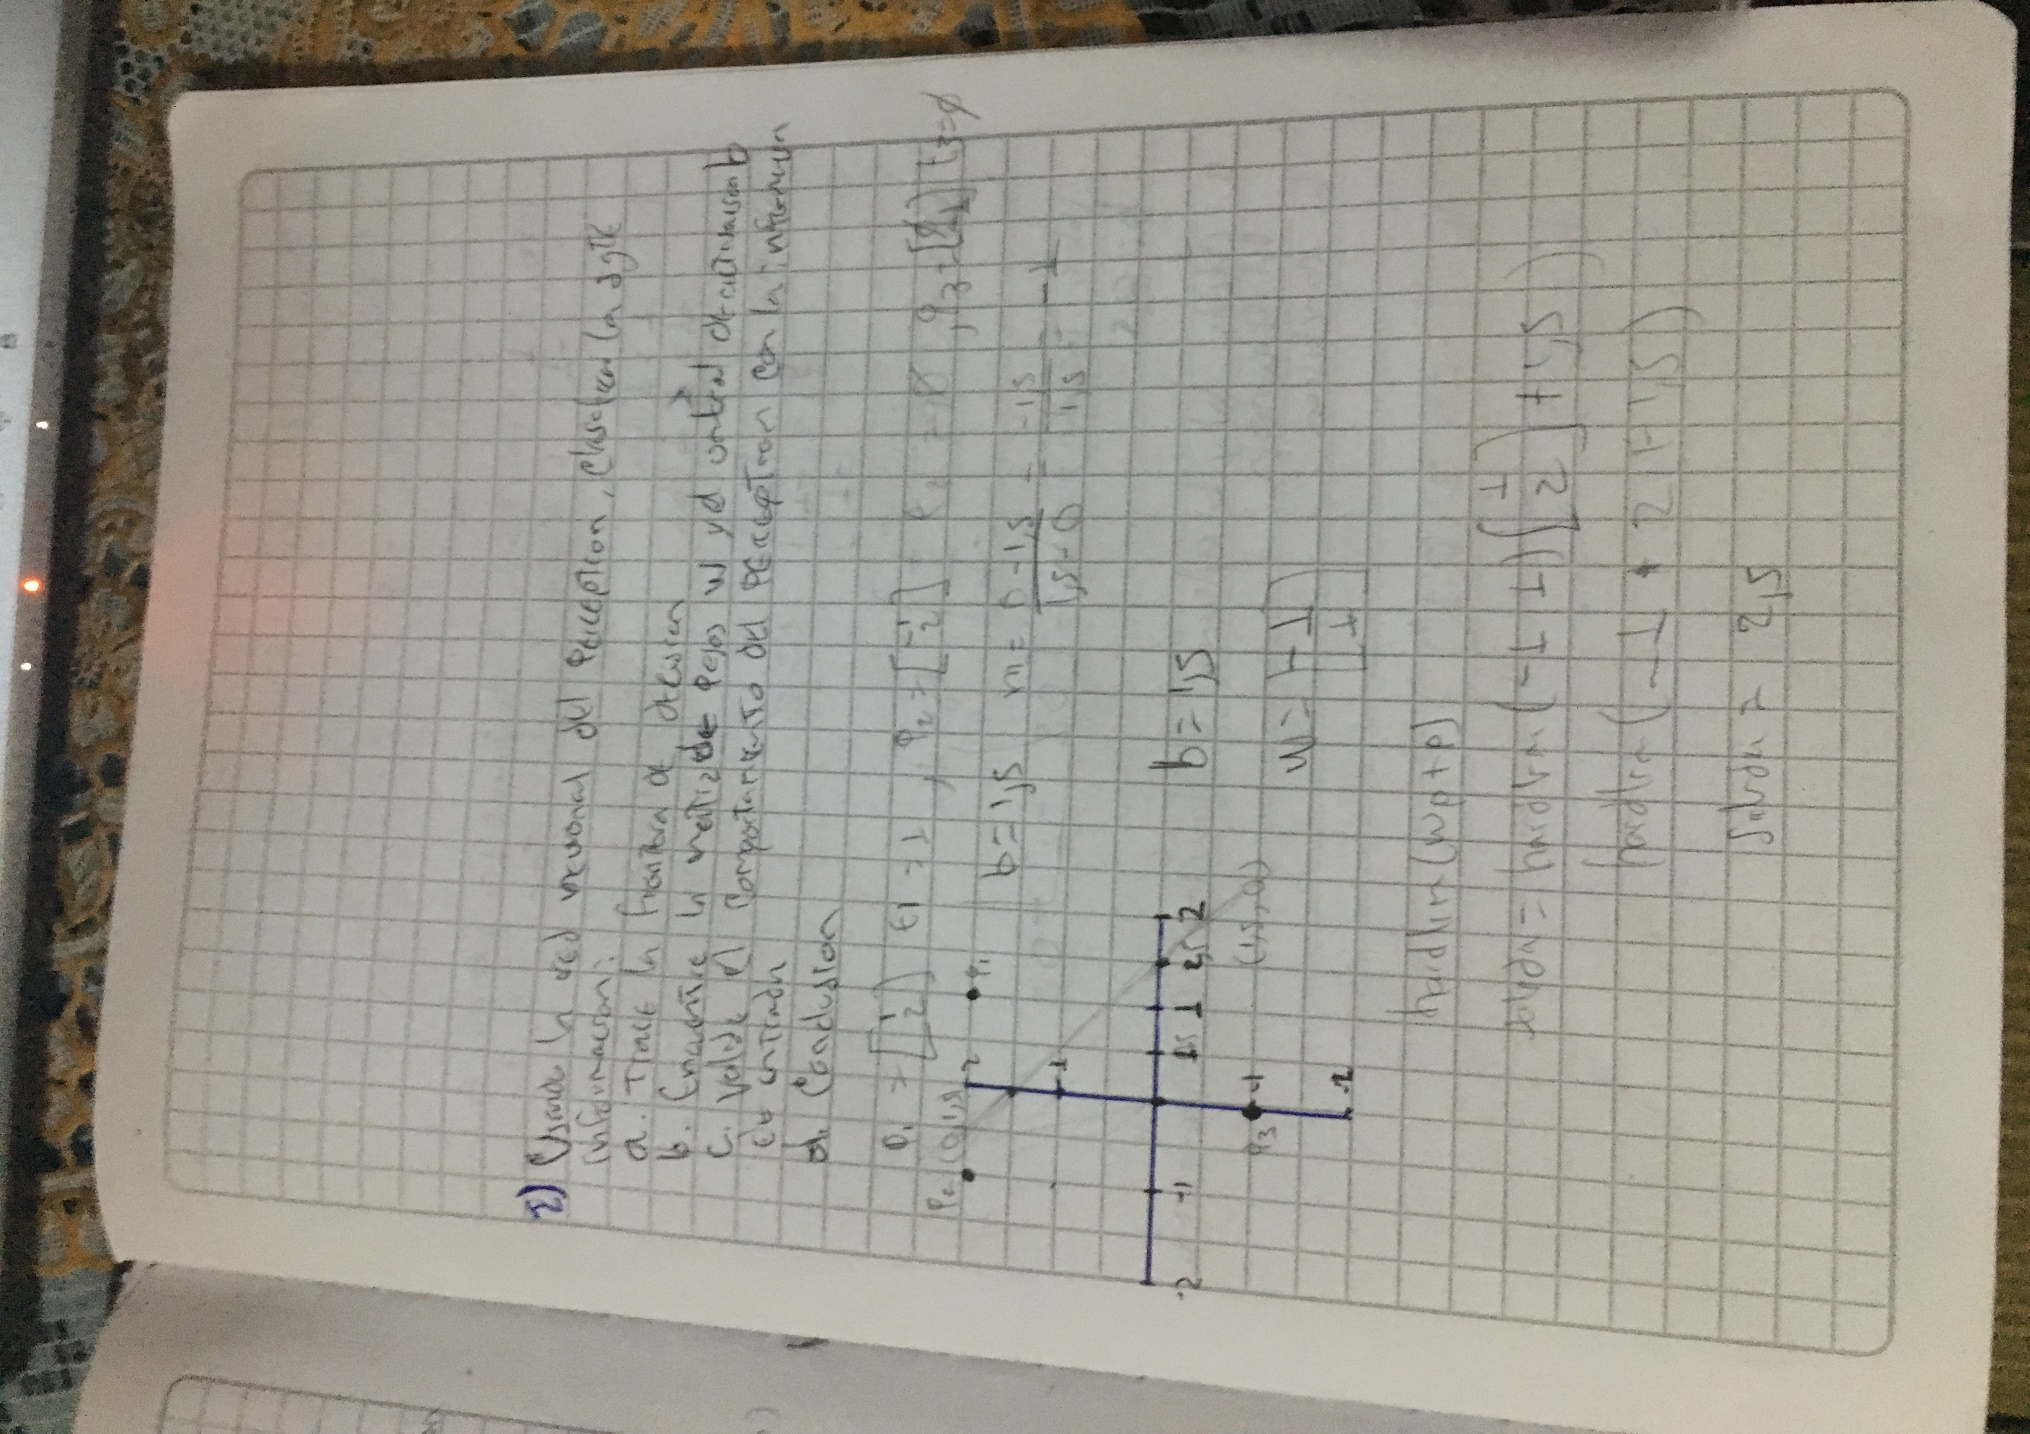 2) Usando la red neuronal del Perceptron, clasifican la sgTE
informacion:
a. Trace la frontera de decision
b. Encuentre la matriz de Pesos W y el umbral de activacion b
c. Valide el Comportamiento del PERCEPTRON con la informacion
de entrada
d. Conclusion
P1 = [1 2] t1 = 1 , P2 = [-1 2] t2 = 0 , P3 = t3=0
P2 (0,1,5) 2 P1
b=1,5 m= 0-1,5 / 1,5-0 = -1,5 / 1,5 = -1
1
-2 -1 0,5 1 1,5 2
b=1,5
P3 -1 (1,5,0)
W=
-2
hardlim(Wp+b)
Salida= hardlim (-1 1) [1 2] + 1,5)
hardlim (-1 + 2 + 1,5)
Salida = 2,5